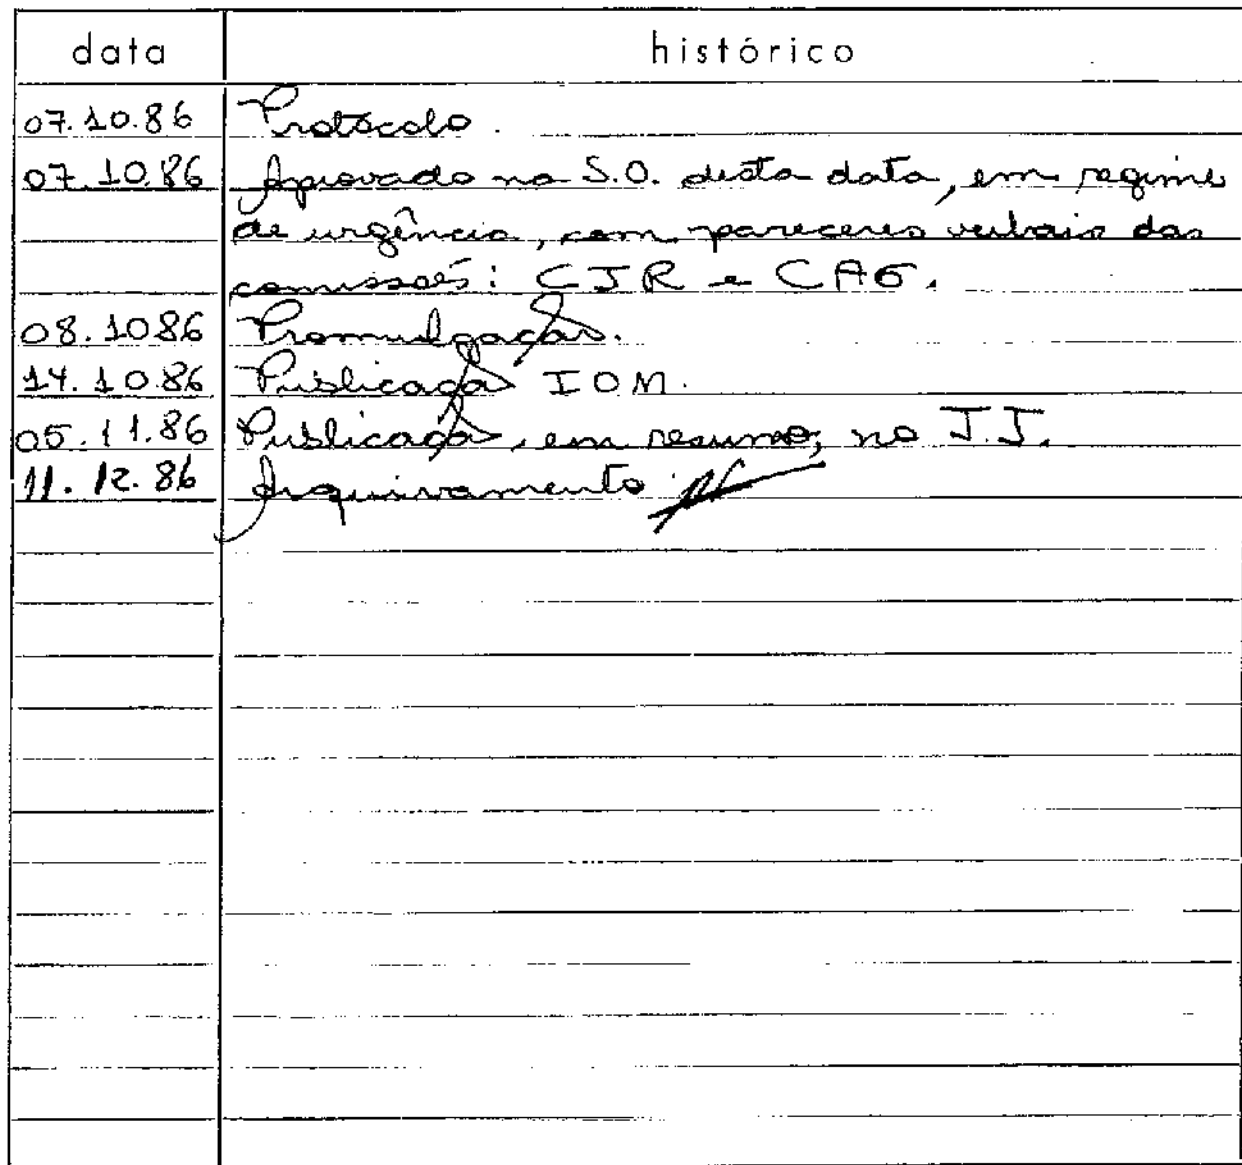 data histórico
07.10.86 Protocolo.
07.10.86 Aprovado na S.O. desta data, em regime
de urgência, com pareceres verbais das
comissões: CJR e CAG.
08.10.86 Promulgação.
14.10.86 Publicação IOM.
05.11.86 Publicação, em resumo, no J.J.
11.12.86 Arquivamento